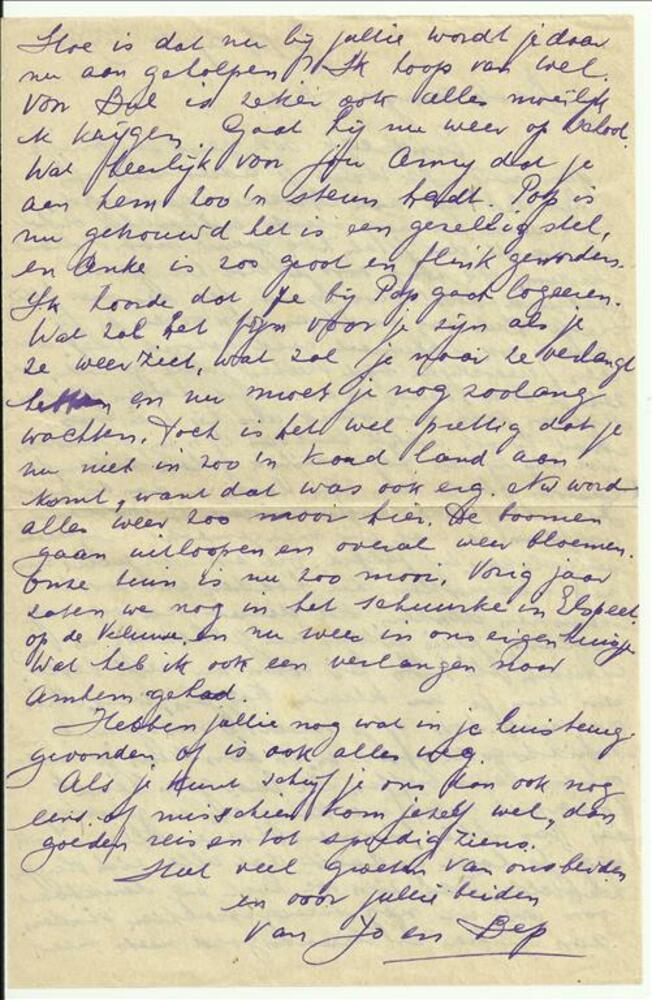 Hoe is dat nu bij jullie wordt je daar
nu aan geholpen? Ik hoop van wel.
Van Bul is zeker ook alles moeilijk
te krijgen. Gaat hij nu weer op
Wat heerlijk voor jou Anny dat je
aan hem zoo'n steun hadt. Pop is
nu getrouwd het is een gezellig stel,
en Anke is zoo groot en flink geworden.
Ik hoorde dat je bij Pop gaat logeeren.
Wat zal het fijn voor je zijn als je
ze weer ziet, wat zal je naar ze verlangt
hebben en nu moet je nog zoolang
wachten. Toch is het wel prettig dat je
nu niet in zoo'n koud land aan
komt, want dat was ook erg. Nu word
alles weer zoo mooi hier. De boomen
gaan uitloopen en overal weer bloemen.
Onze tuin is nu zoo mooi. Vorig jaar
zaten we nog in het schuurke in Elspeet
op de Veluwe, en nu weer in ons eigen huisje
Wat heb ik ook een verlangen naar
Arnhem gehad.
Hebben jullie nog wat in je huis terug
gevonden of is ook alles weg.
Als je kunt schrijf je ons dan ook nog
eens of misschien kom jezelf wel, dan
goeden reis en tot spoedig ziens.
Met veel groeten van ons beiden
en voor jullie beiden
van Jo en Bep